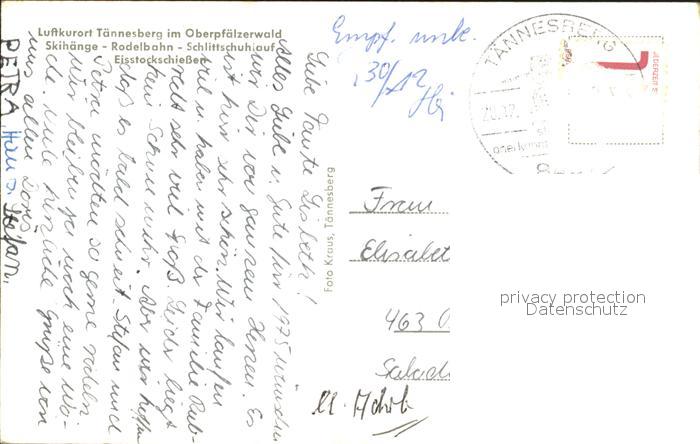 Luftkurort Tännesberg im Oberpfälzerwald
Skihänge - Rodelbahn - Schlittschuhlauf
Eisstockschießen
Empf. unbk.
30/12
TÄNNESBERG
20.12.
anerkannt
Liebe Tante Lisbeth!
Alles Liebe u. Gute für 1975 wünschen
wir Dir von ganzem Herzen. Es
ist hier sehr schön. Wir laufen
viel u. haben mit der Familie
recht sehr viel Spaß. Leider liegt
kein Schnee mehr. Aber wir hoffen
daß es bald schneit. Stefan und
Petra möchten so gerne rodeln.
Wir bleiben ja noch eine Wo-
che. Viele herzliche Grüße von
uns allen Doris
PETRA, Hans, Stefan.
Foto Kraus, Tännesberg
Frau
Elisabet
463
privacy protection
Datenschutz